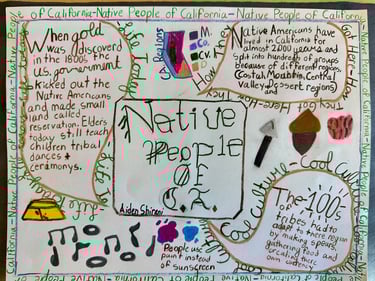 of California-Native People of California-Native People of California-Native People of California
When gold
was discoverd
in the 1800s the
U.S. government
kicked out the
Native Americans
and made small
land called
reservation. Elders
today still teach
children tribal
dances +
ceramonys.
Life Today
CA Regions
M.
Co.
CV.
Native Americans have
lived in California
for almost 2,000 years and
split into hundreds of groups
because of different regions.
(Costal, Mountain, Central
valley, Dessert regions)
How They Got Here-How
They Got Here-How
Native
People
OF
C.A.
Aiden Shirazi
Cool Culture
Cool Culture
The 100s
of tribes had to
adapt to there region
by making spears,
gathering food and
creating there
own
People use
paint instead
of sunscreen
California-Native People of California-Native People of California-Native People of California